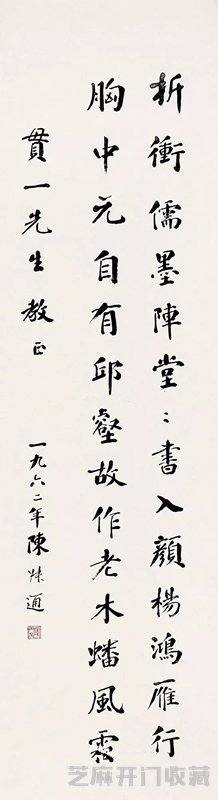 折衝儒墨陣堂〻書入顏楊鴻雁行
胸中元自有邱壑故作老木蟠風霜
貫一先生教正
一九六二年陳叔通
芝麻开门收藏